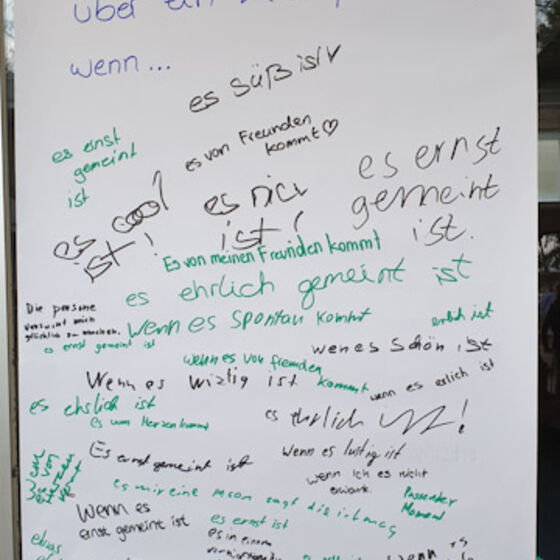 über ein
wenn...
es süß ist
es ernst
gemeint
ist
es von Freunden
kommt♡
es ernst
gemeint
ist.
es cool
ist!
es
ist!
Es von meinen Freunden kommt
es ehrlich gemeint ist
Die persone
versucht mich
glücklich zu machen.
wenn es spontan kommt
es ernst gemeint ist
wenn es von fremden
kommt
wen es schön ist
Wenn es witzig ist
wenn es erlich ist
es ehrlich ist
es vom Herzen kommt
es ehrlich ist!
Es ernst gemeint ist
Wenn es lustig ist
wenn ich es nicht
erwarte
es mir eine person sagt die ich mag
Passender
Moment
Wenn es
ernst gemeint ist
es ernst ist
es in einem
etwas